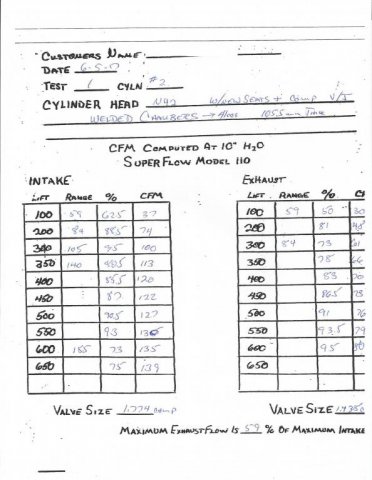 CUSTOMERS NAME:
DATE 6-5-17
TEST 1 CYLN #2
CYLINDER HEAD N42 W/NEW SEATS + Comp V/J
WELDED CHAMBERS → 105.5mm
CFM COMPUTED AT 10" H2O
SUPERFLOW MODEL 110
INTAKE EXHAUST
LIFT RANGE % CFM LIFT RANGE % CF
100 59 62.5 37 100 59 50 30
200 84 88.5 74 200 81 48
300 105 95 100 300 84 73 61
350 140 113 350 78 66
400 120 400 83 70
450 87 122 450 86.5 73
500 90.5 127 500 91 76
550 93 130 550 93.5 79
600 185 73 135 600 95 80
650 75 139 650
VALVE SIZE 1.774 comp VALVE SIZE
MAXIMUM EXHAUST FLOW IS 59 % OF MAXIMUM INTAKE